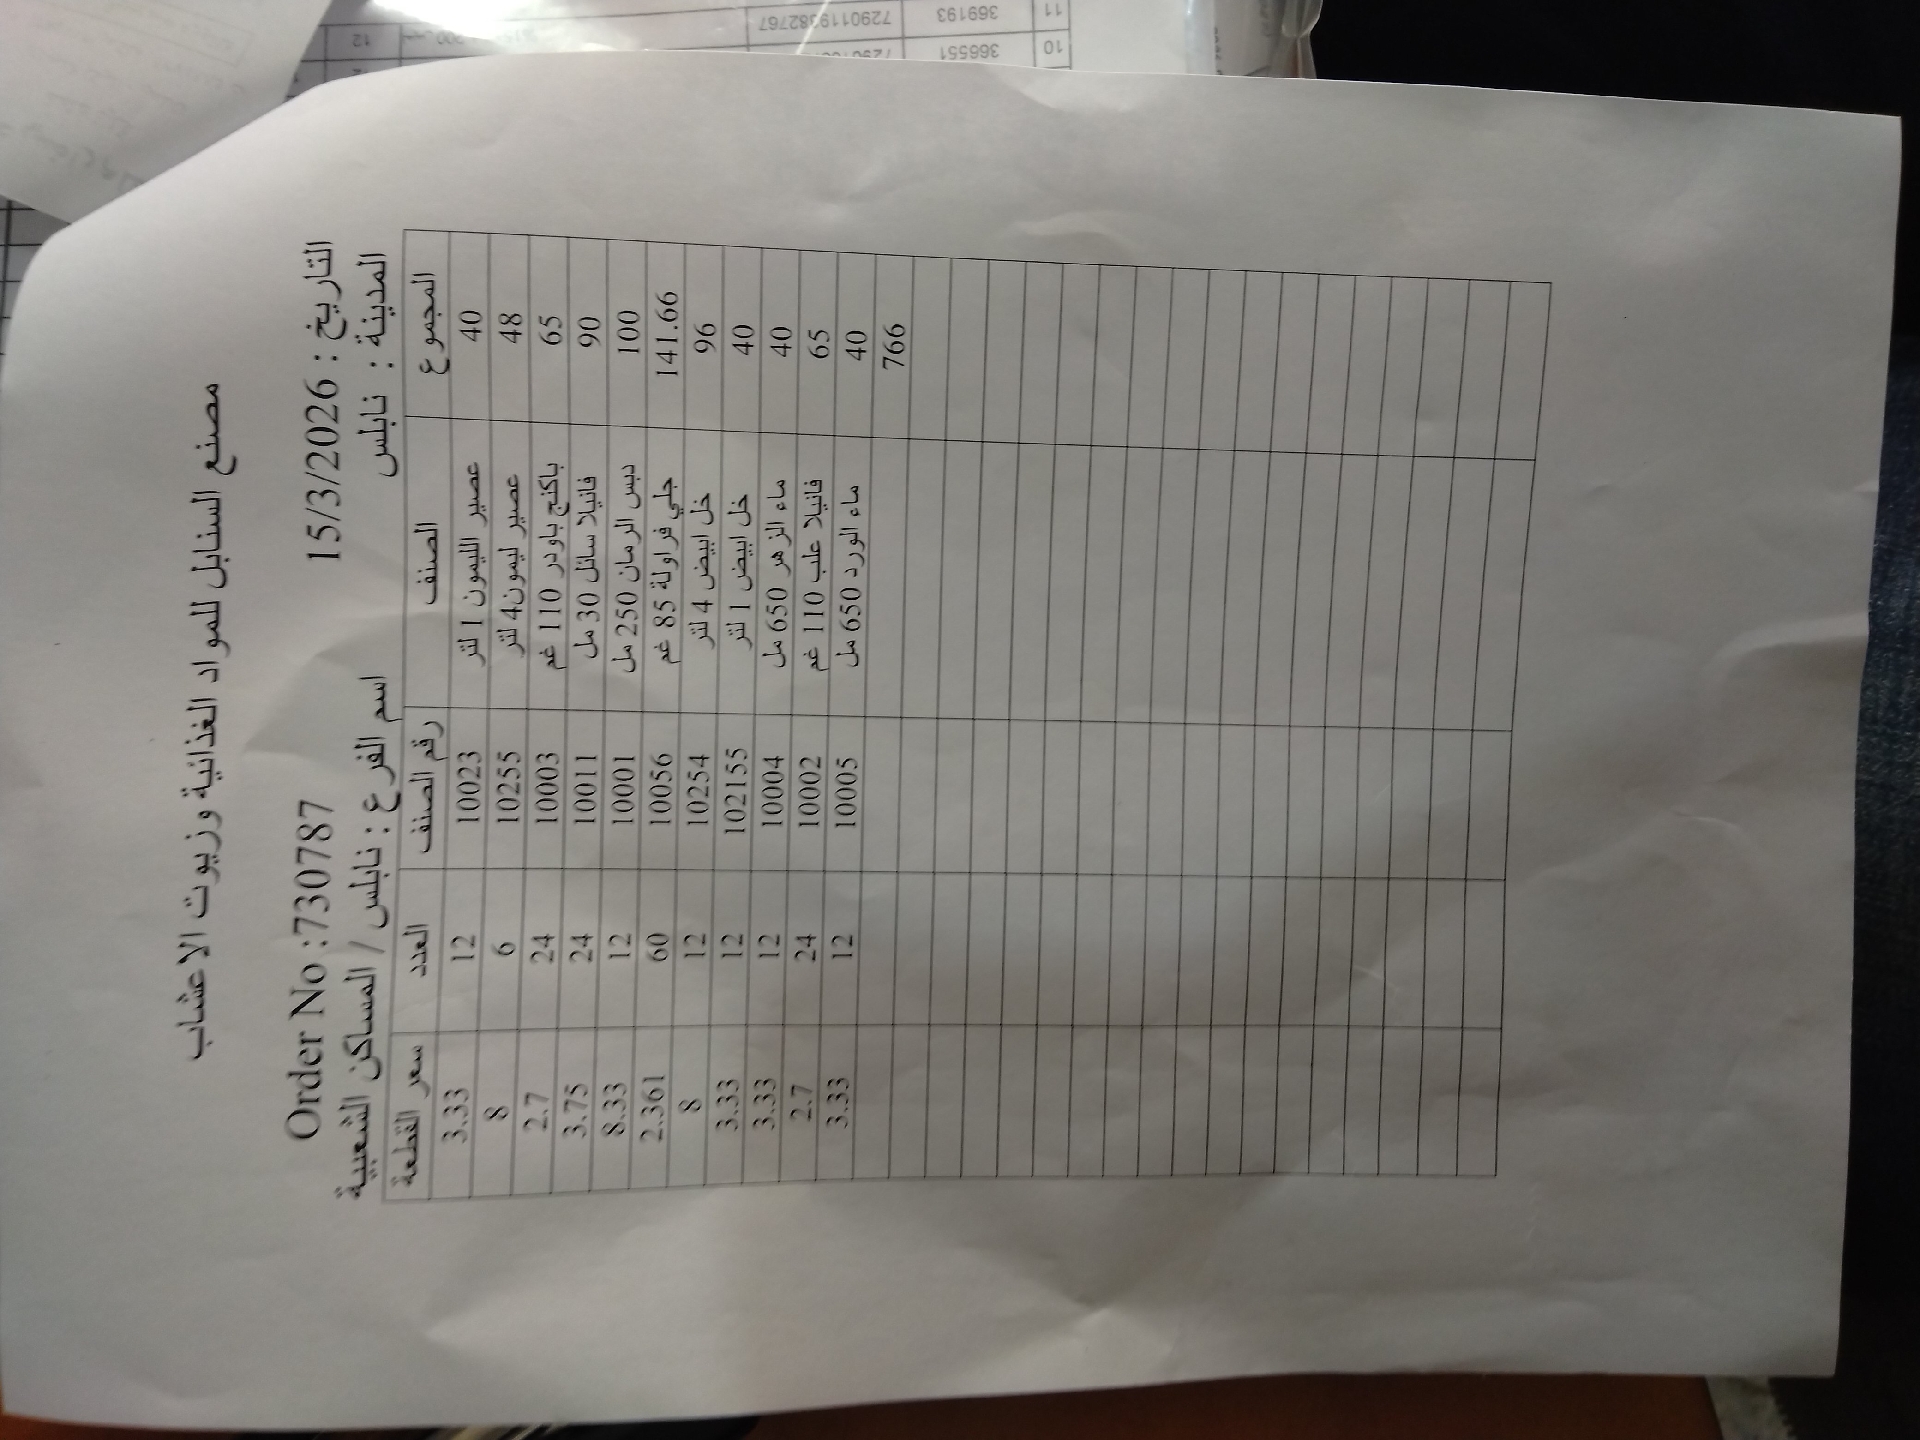 مصنع السنابل للمواد الغذائية وزيوت الاعشاب
Order No :730787 15/3/2026 : التاريخ
اسم الفرع : نابلس / المساكن الشعبية المدينة : نابلس
سعر القطعة العدد رقم الصنف الصنف المجموع
3.33 12 10023 عصير الليمون 1 لتر 40
8 6 10255 عصير ليمون4 لتر 48
2.7 24 10003 باكنج باودر 110 غم 65
3.75 24 10011 فانيلا سائل 30 مل 90
8.33 12 10001 دبس الرمان 250 مل 100
2.361 60 10056 جلي فراولة 85 غم 141.66
8 12 10254 خل ابيض 4 لتر 96
3.33 12 102155 خل ابيض 1 لتر 40
3.33 12 10004 ماء الزهر 650 مل 40
2.7 24 10002 فانيلا علب 110 غم 65
3.33 12 10005 ماء الورد 650 مل 40
766
10 366551
11 369193 7290119382767
12